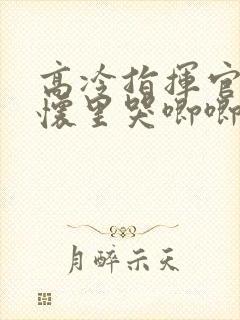 高冷指揮官
懷里哭唧唧
月醉示天